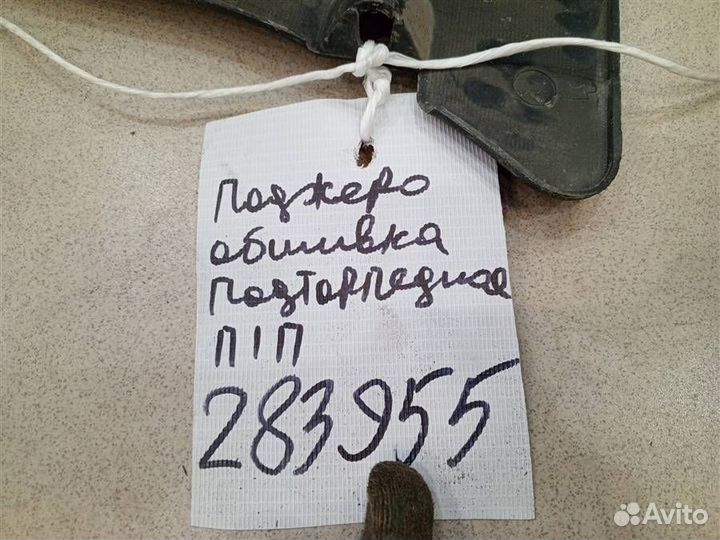 Поджеро
обшивка
Подторпедная
П/П
283955
Avito